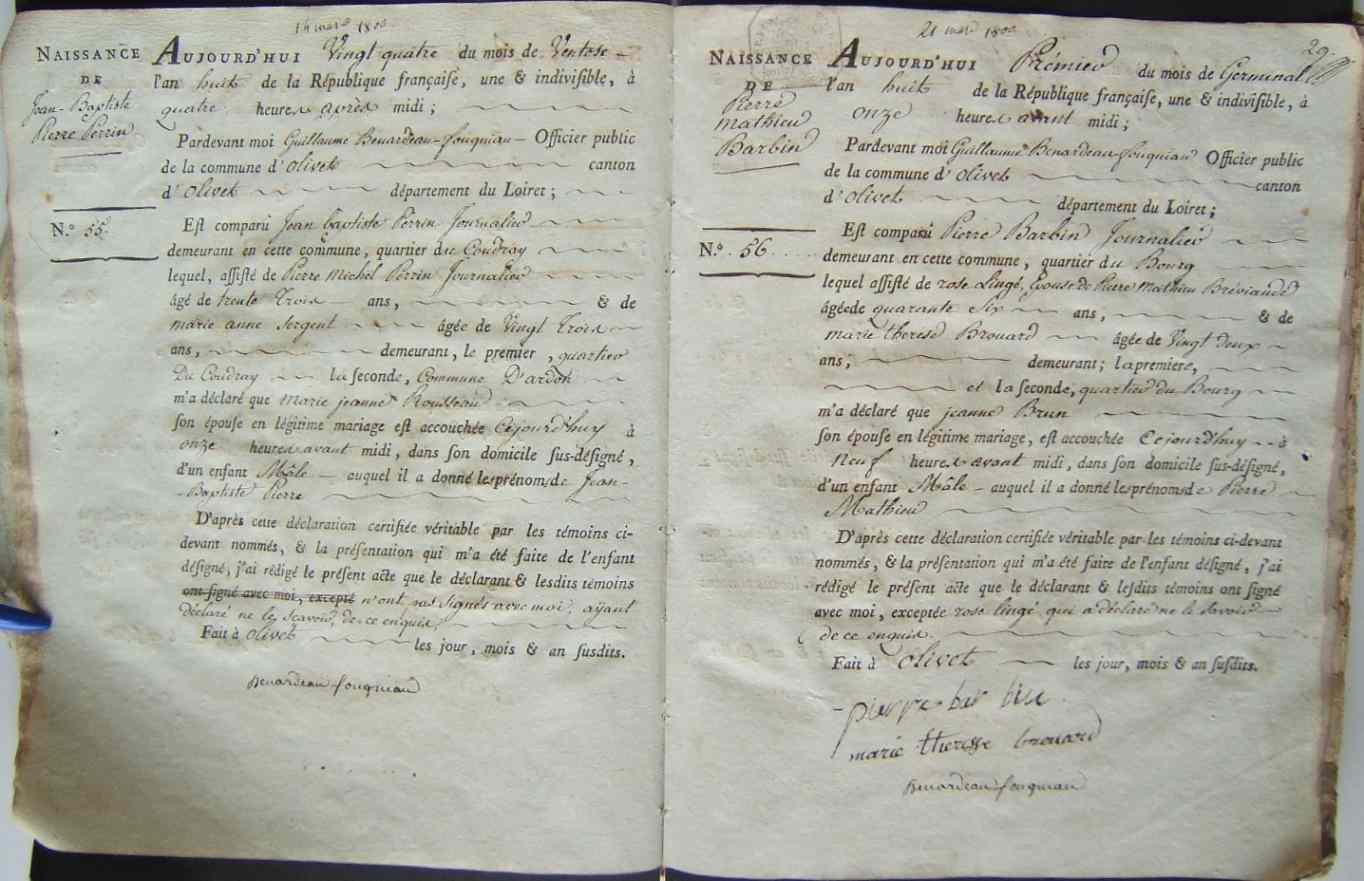 14 mars 1800
NAISSANCE
DE
Jean-Baptiste
Pierre Perrin
N.º 55.
AUJOURD'HUI Vingt quatre du mois de Ventose
l'an huit de la République française, une & indivisible, à
quatre heures après midi ;
Pardevant moi Guillaume Benardeau-fougniau Officier public
de la commune d'olivet canton
d'olivet département du Loiret ;
Est comparû Jean baptiste Perrin Journalier
demeurant en cette commune, quartier du Coudray
lequel, assisté de Pierre Michel Perrin Journalier
âgé de trente Trois ans, & de
marie anne sergent âgée de Vingt Trois
ans, demeurant, le premier, quartier
Du Coudray la seconde, Commune D'ardon
m'a déclaré que marie jeanne Rousseau
son épouse en légitime mariage est accouchée Cejourd'huy à
onze heures avant midi, dans son domicile sus-désigné,
d'un enfant Mâle auquel il a donné les prénoms de Jean-
-Baptiste Pierre
D'après cette déclaration certifiée véritable par les témoins ci-
devant nommés, & la présentation qui m'a été faite de l'enfant
désigné, j'ai rédigé le présent acte que le déclarant & lesdits témoins
ont signé avec moi, excepté n'ont pas signés avec moi, ayant
déclaré ne le sçavoir, de ce enquis.
Fait à olivet les jour, mois & an susdits.
Benardeau fougniau
21 mars 1800
29.
NAISSANCE
DE
Pierre
Mathieu
Barbin
N.º 56
AUJOURD'HUI Premier du mois de Germinal
l'an huit de la République française, une & indivisible, à
onze heures avant midi ;
Pardevant moi Guillaume Benardeau-fougniau Officier public
de la commune d'olivet canton
d'olivet département du Loiret ;
Est comparû Pierre Barbin Journalier
demeurant en cette commune, quartier du Bourg
lequel assisté de rose Lingé, Epouse de Pierre Mathieu Breviande
âgée de quarante Six ans, & de
marie therese Brouard âgée de Vingt deux
ans, demeurant ; la première,
et la seconde, quartier du Bourg
m'a déclaré que jeanne Brun
son épouse en légitime mariage, est accouchée Cejourd'huy à
Neuf heures avant midi, dans son domicile sus-désigné,
d'un enfant Mâle - auquel il a donné les prénoms de Pierre
Mathieu
D'après cette déclaration certifiée véritable par les témoins ci-devant
nommés, & la présentation qui m'a été faite de l'enfant désigné, j'ai
rédigé le présent acte que le déclarant & lesdits témoins ont signé
avec moi, exceptée rose lingé, qui a déclaré ne le Savoir
de ce enquis.
Fait à olivet les jour, mois & an susdits.
pierre bar bin
marie theresse brouard
Benardeau fougniau